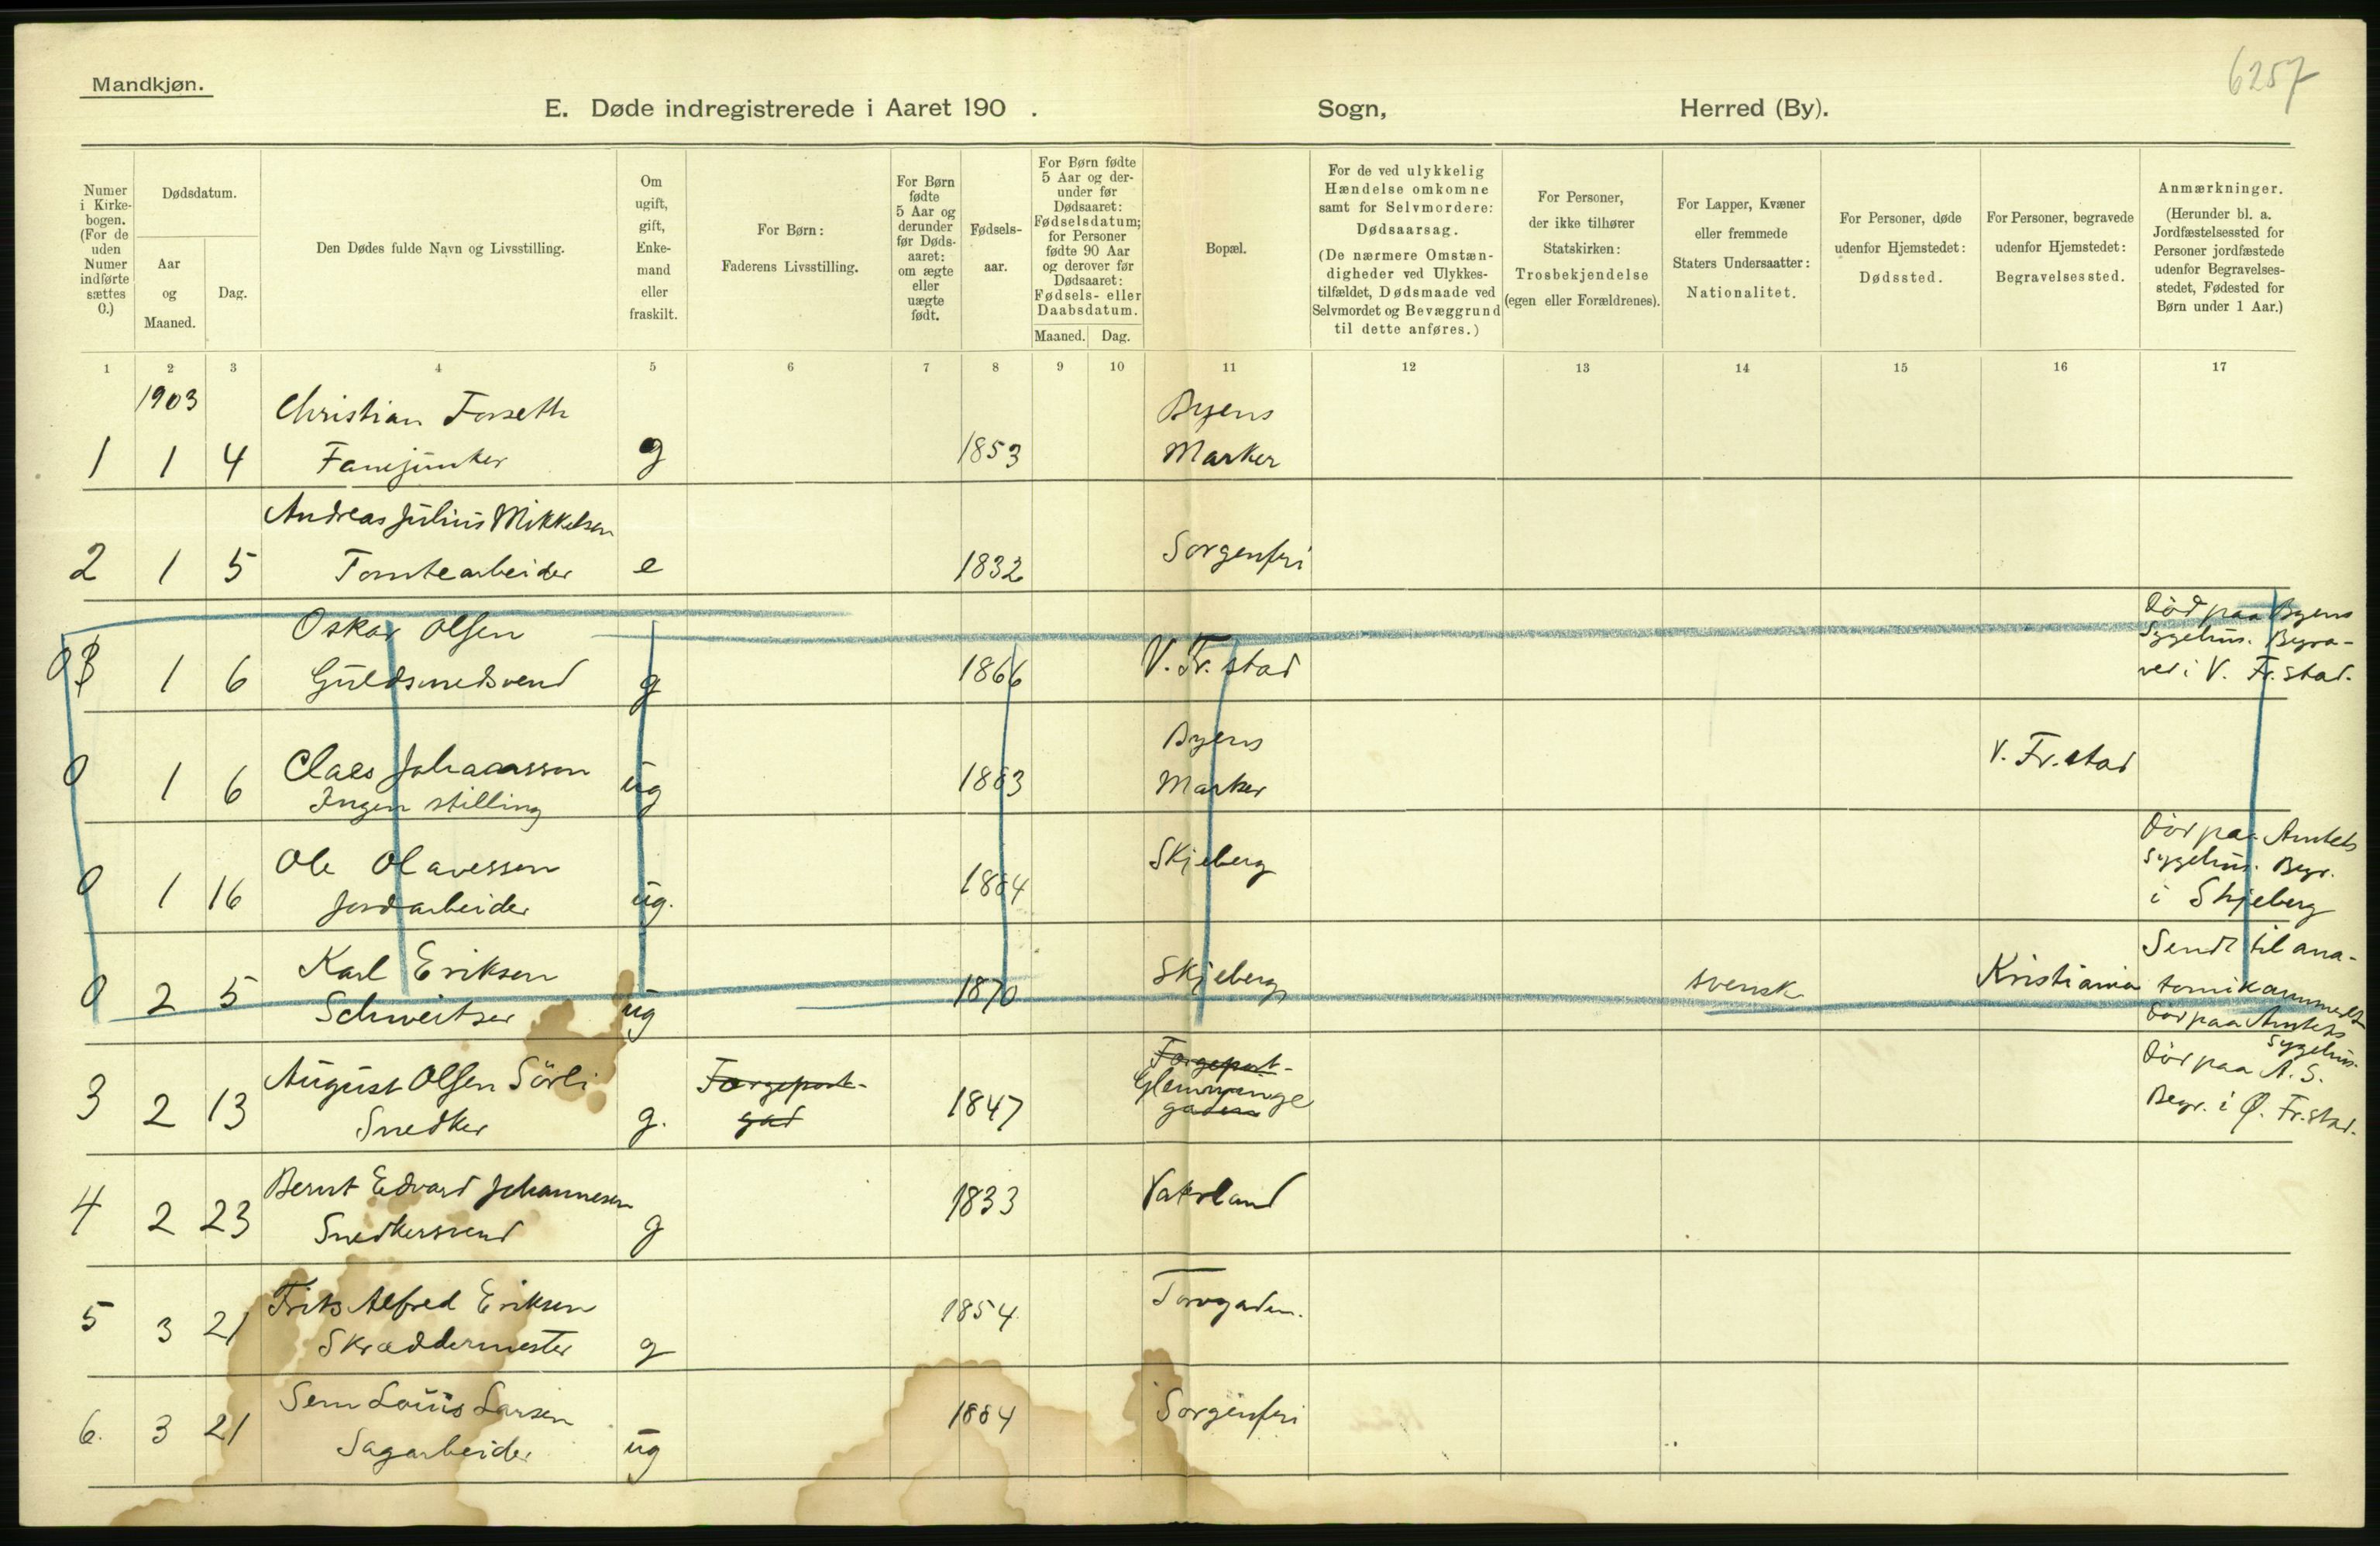 6257
Mandkjøn.
E. Døde indregistrerede i Aaret 190 . Sogn, Herred (By).
Numer i Kirke-bogen. (For de uden Numer indførte sættes 0.)
Dødsdatum.
Aar og Maaned.
Dag.
Den Dødes fulde Navn og Livsstilling.
Om ugift, gift, Enke-mand eller fraskilt.
For Børn: Faderens Livsstilling.
For Børn fødte 5 Aar og derunder før Døds-aaret: om ægte eller uægte født.
Fødsels-aar.
For Børn fødte 5 Aar og der-under før Dødsaaret: Fødselsdatum; for Personer fødte 90 Aar og derover før Dødsaaret: Fødsels- eller Daabsdatum.
Maaned. Dag.
Bopæl.
For de ved ulykkelig Hændelse omkomne samt for Selvmordere: Dødsaarsag. (De nærmere Omstæn-digheder ved Ulykkes-tilfældet, Dødsmaade ved Selvmordet og Bevæggrund til dette anføres.)
For Personer, der ikke tilhører Statskirken: Trosbekjendelse (egen eller Forældrenes).
For Lapper, Kvæner eller fremmede Staters Undersaatter: Nationalitet.
For Personer, døde udenfor Hjemstedet: Dødssted.
For Personer, begravede udenfor Hjemstedet: Begravelsessted.
Anmærkninger. (Herunder bl. a. Jordfæstelsessted for Personer jordfæstede udenfor Begravelses-stedet, Fødested for Børn under 1 Aar.)
1 2 3 4 5 6 7 8 9 10 11 12 13 14 15 16 17
1903 Christian Forseth Byens
1 1 4 Fanejunker g 1853 Marker
Andreas Julius Mikkelsen
2 1 5 Tomtearbeider e 1832 Sorgenfri
Oskar Olsen Død paa Byens
0 3 1 6 Guldsmedsvend g 1866 V. Fr. stad Sygehus. Begra-
ved i V. Fr. stad.
Claes Johansson Byens
0 1 6 Ingen stilling ug 1883 Marker V. Fr. stad
Ole Olavessen Skjeberg Død paa Amtets
0 1 16 Jordarbeider ug. 1884 Sygehus. Begr.
i Skjeberg
Karl Eriksen Sendt til ana-
0 2 5 Schweitser ug 1870 Skjeberg svensk Kristiania tomikammeret
Død paa Amtets
Sygehus.
August Olsen Sörli Fargeport- Fargeport- Død paa A. S.
3 2 13 Snedker g. gad 1847 Glemminge Begr. i Ø. Fr. stad.
gaden
Bernt Edvard Johannesen
4 2 23 Snedkersvend g 1833 Vaterland
Frits Alfred Eriksen
5 3 21 Skræddermester g 1854 Torvgaden.
Sem Louis Larsen
6. 3 21 Sagarbeider ug 1884 Sorgenfri